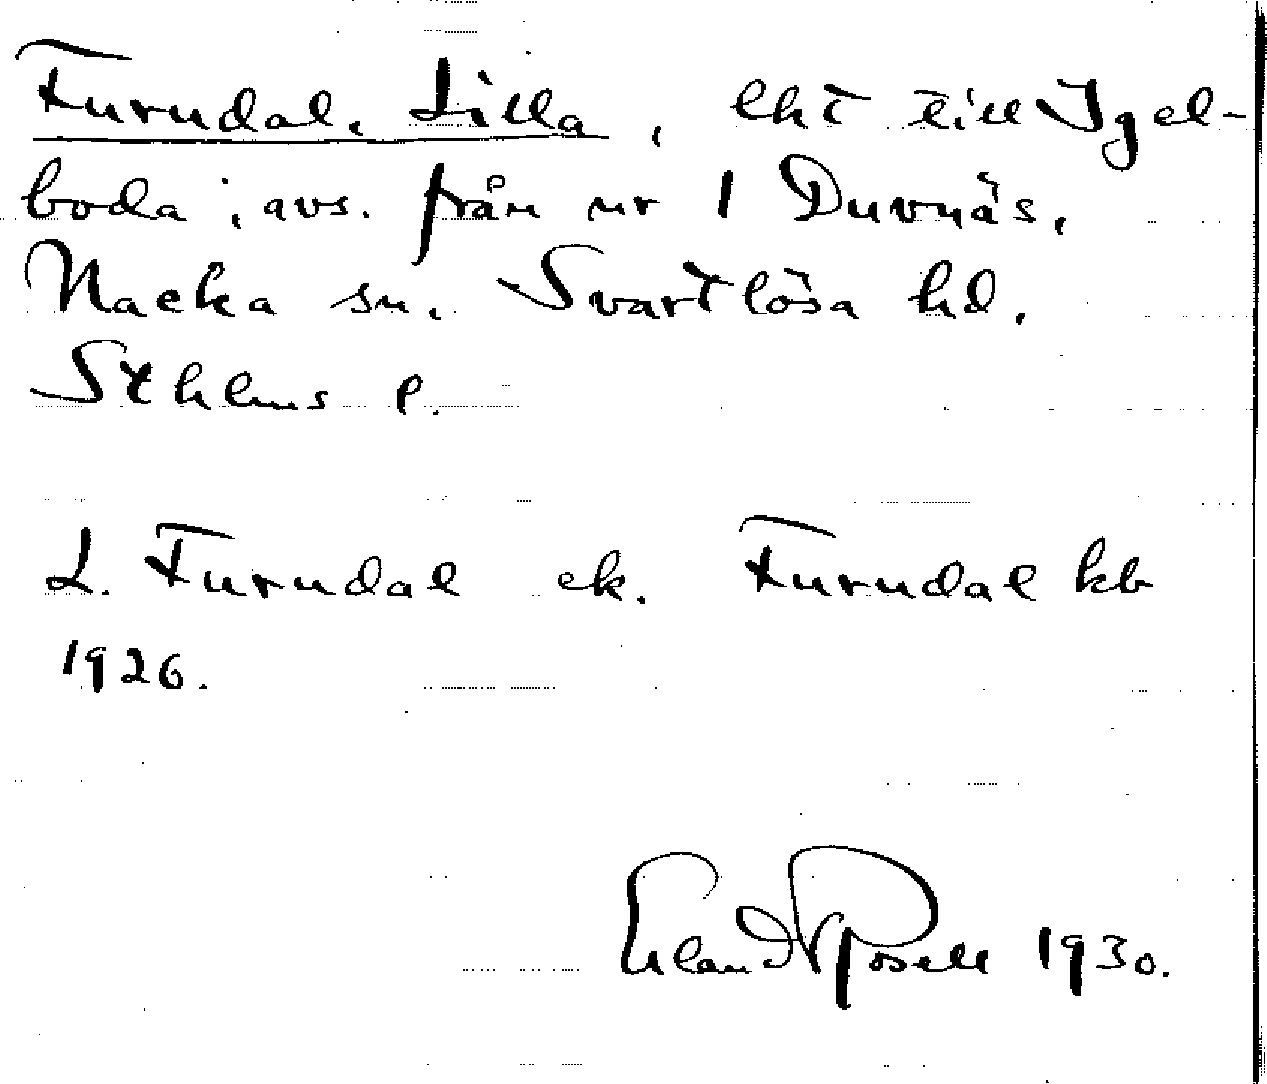 Furudal, Lilla, lht till Igel-
boda; avs. från nr 1 Duvnäs,
Nacka sn. Svartlösa hd,
Sthlms l.
L. Furudal ek. Furudal kb
1926.
Erland Rosell 1930.